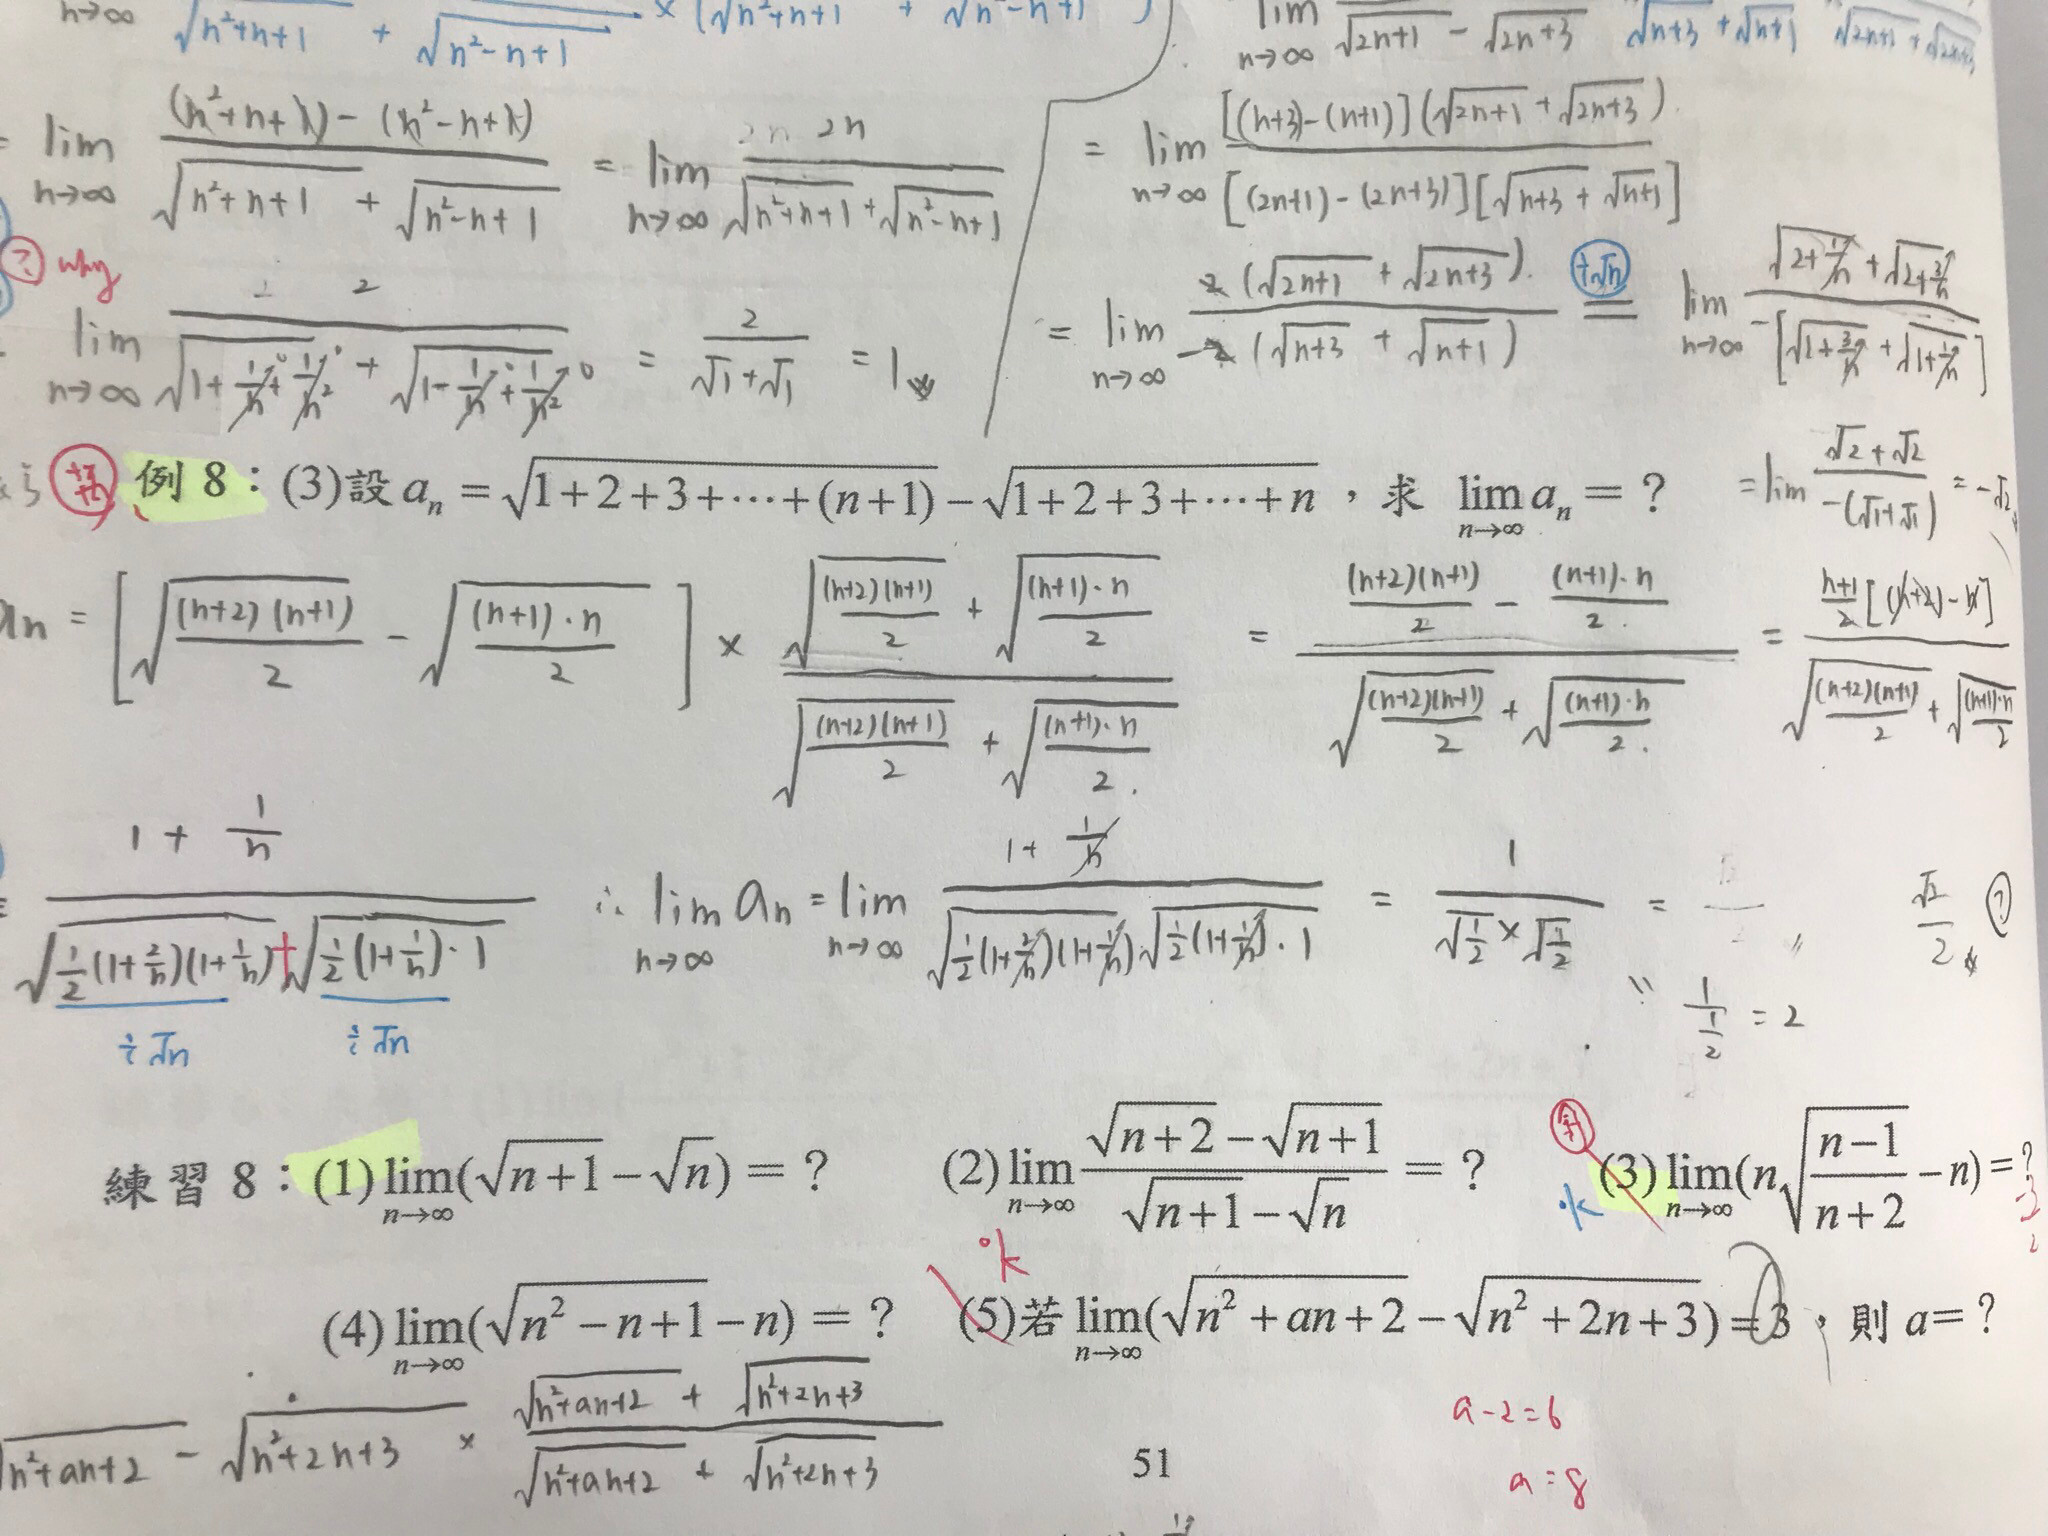 n→∞ √(n²+n+1) + √(n²-n+1) × (√(n²+n+1) + √(n²-n+1) )
= lim n→∞ ((n²+n+1) - (n²-n+1))/(√(n²+n+1) + √(n²-n+1)) = lim n→∞ 2n/(√(n²+n+1) + √(n²-n+1))
? why
lim n→∞ 2/(√(1+1/n+1/n²) + √(1-1/n+1/n²)) = 2/(√1+√1) = 1
lim n→∞ √(2n+1) - √(2n+3) √(n+3) + √(n+1) √(2n+1) + √(2n+3)
= lim n→∞ [(n+3)-(n+1)](√(2n+1) + √(2n+3))/[(2n+1)-(2n+3)][√(n+3) + √(n+1)]
= lim n→∞ 2(√(2n+1) + √(2n+3))/-2(√(n+3) + √(n+1)) ÷√n = lim n→∞ (√(2+1/n) + √(2+3/n))/-[√(1+3/n) + √(1+1/n)]
= lim (√2+√2)/-(√1+√1) = -√2
例 8：(3)設 aₙ = √(1+2+3+⋯+(n+1)) - √(1+2+3+⋯+n)，求 lim n→∞ aₙ = ？
an = [√((n+2)(n+1)/2) - √((n+1)·n/2)] × (√((n+2)(n+1)/2) + √((n+1)·n/2))/(√((n+2)(n+1)/2) + √((n+1)·n/2)) = ((n+2)(n+1)/2 - (n+1)·n/2)/(√((n+2)(n+1)/2) + √((n+1)·n/2)) = (n+1)/2[(n+2)-n]/(√((n+2)(n+1)/2) + √((n+1)·n/2))
= (1+1/n)/(√(1/2(1+2/n)(1+1/n)) + √(1/2(1+1/n)·1)) ∴ lim n→∞ an = lim n→∞ (1+1/n)/(√(1/2(1+2/n)(1+1/n)) √(1/2(1+1/n)·1)) = 1/(√(1/2) × √(1/2)) = √2/2 ?
" 1/(1/2) = 2
練習 8：(1) lim n→∞ (√(n+1) - √n) = ？ (2) lim n→∞ (√(n+2) - √(n+1))/(√(n+1) - √n) = ？ ok (3) lim n→∞ (n√((n-1)/(n+2)) - n) = ？
ok
(4) lim n→∞ (√(n²-n+1) - n) = ？ (5)若 lim n→∞ (√(n²+an+2) - √(n²+2n+3)) = 3，則 a = ？
√(n²+an+2) - √(n²+2n+3) × (√(n²+an+2) + √(n²+2n+3))/(√(n²+an+2) + √(n²+2n+3))
a-2=6
a=8
51